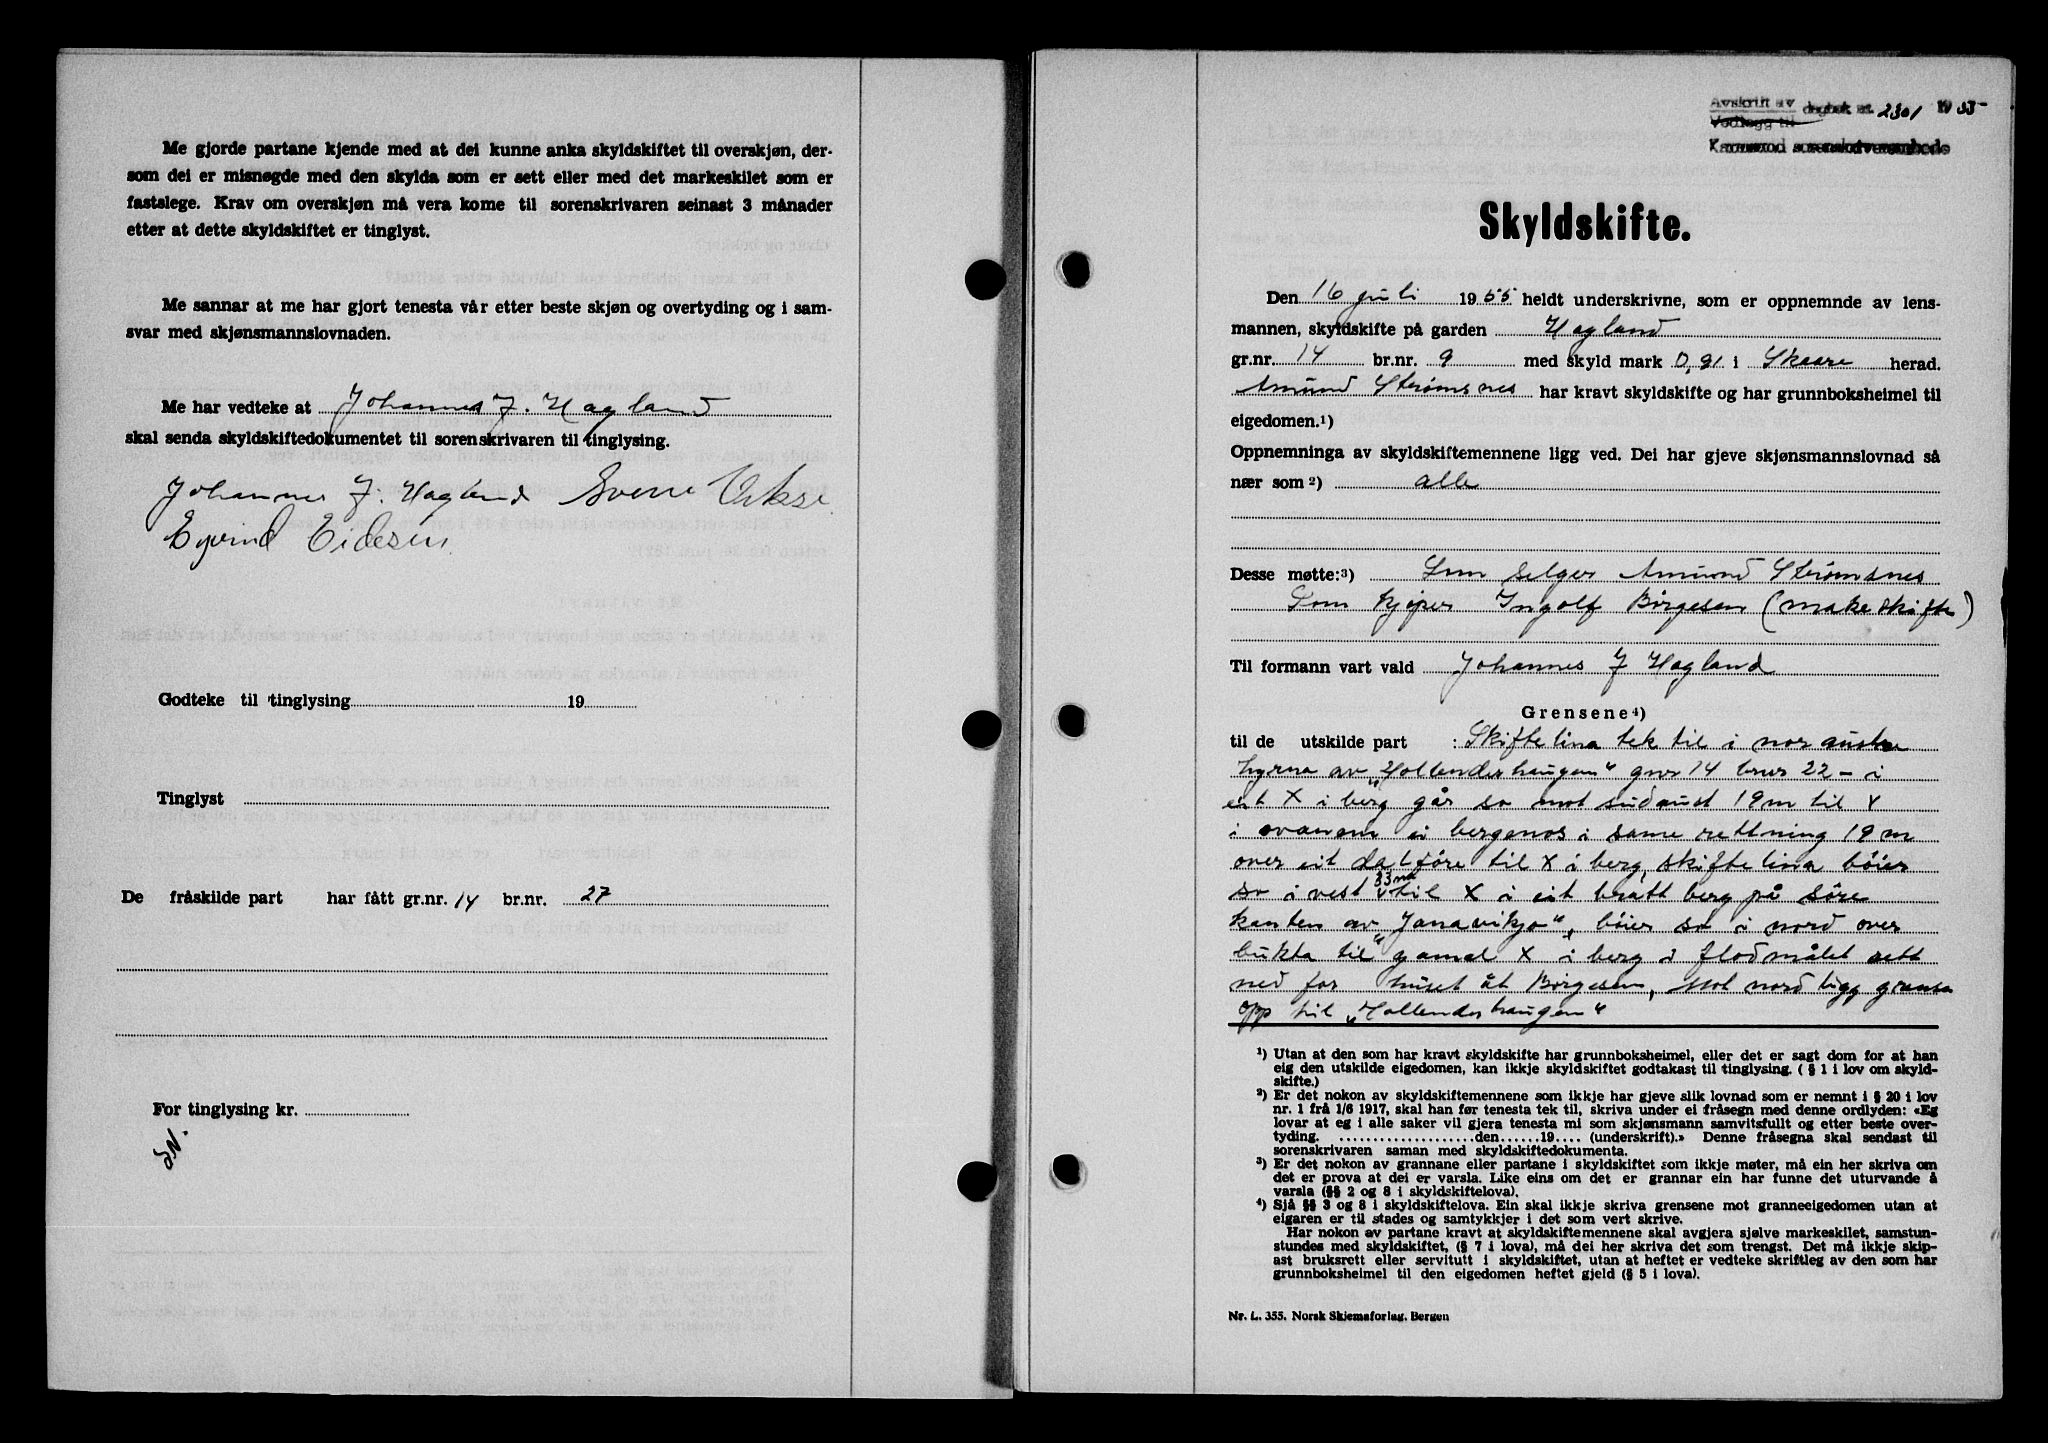 Me gjorde partane kjende med at dei kunne anka skyldskiftet til overskjøn, der-
som dei er misnøgde med den skylda som er sett eller med det markeskilet som er
fastslege. Krav om overskjøn må vera kome til sorenskrivaren seinast 3 månader
etter at dette skyldskiftet er tinglyst.
Me sannar at me har gjort tenesta vår etter beste skjøn og overtyding og i sam-
svar med skjønsmannslovnaden.
Me har vedteke at Johannes J. Hagland
skal senda skyldskiftedokumentet til sorenskrivaren til tinglysing.
Johannes J. Hagland Sverre
Eyvind Eidesen
Godteke til tinglysing 19
Tinglyst
De fråskilde part har fått gr.nr. 14 br.nr. 27
For tinglysing kr.
SN.
Avskrift av dagbok nr. 2301 1955
Vedlegg til
Karmsund sorenskrivarembede
Skyldskifte.
Den 16 juli 1955 heldt underskrivne, som er oppnemnde av lens-
mannen, skyldskifte på garden Hagland
gr.nr. 14 br.nr. 9 med skyld mark 0,91 i Skaare herad.
Amund Strømsnes har kravt skyldskifte og har grunnboksheimel til
eigedomen.1)
Oppnemninga av skyldskiftemennene ligg ved. Dei har gjeve skjønsmannslovnad så
nær som 2) alle
Desse møtte:3) Som selger Amund Strømsnes
Som kjøper Ingolf Børgesen (makeskifte)
Til formann vart vald Johannes J Hagland
Grensene 4)
til de utskilde part : Skiftelina tek til i nor austre
hyrna av „Hollenderhaugen“ gnr 14 bnr 22 - i
eit X i berg går so mot sudaust 19 m til X
i ei bergnos i same rettning 19 m
over eit dalføre til X i berg, skiftelina bøier
so i vest 33 m til X i eit bratt berg på søre
kanten av „Janavikjo“, bøier so i nord over
bukta til gamal X i berg i flodmålet rett
ned for huset åt Børgesen, Mot nord ligg grensa
opp til „Hollenderhaugen“
1) Utan at den som har kravt skyldskifte har grunnboksheimel, eller det er sagt dom for at han
eig den utskilde eigedomen, kan ikkje skyldskiftet godtakast til tinglysing. ( § 1 i lov om skyld-
skifte.)
2) Er det nokon av skyldskiftemennene som ikkje har gjeve slik lovnad som er nemnt i § 20 i lov
nr. 1 frå 1/6 1917, skal han før tenesta tek til, skriva under ei fråsegn med denne ordlyden: «Eg
lovar at eg i alle saker vil gjera tenesta mi som skjønsmann samvitsfullt og etter beste over-
tyding. ....................den......19.... (underskrift).» Denne fråsegna skal sendast til
sorenskrivaren saman med skyldskiftedokumenta.
3) Er det nokon av grannane eller partane i skyldskiftet som ikkje møter, må ein her skriva om
det er prova at dei er varsla. Like eins om det er grannar ein har funne det uturvande å
varsla (§§ 2 og 8 i skyldskiftelova).
4) Sjå §§ 3 og 8 i skyldskiftelova. Ein skal ikkje skriva grensene mot granneeigedomen utan at
eigaren er til stades og samtykkjer i det som vert skrive.
Har nokon av partane kravt at skyldskiftemennene skal avgjera sjølve markeskilet, samstun-
stundes med skyldskiftet, (§ 7 i lova), må dei her skriva det som trengst. Det må ikkje skip-
ast bruksrett eller servitutt i skyldskiftet, utan at heftet er vedteke skriftleg av den som har
grunnboksheimel til den eigedomen heftet gjeld (§ 5 i lova).
Nr. L. 355. Norsk Skjemaforlag, Bergen